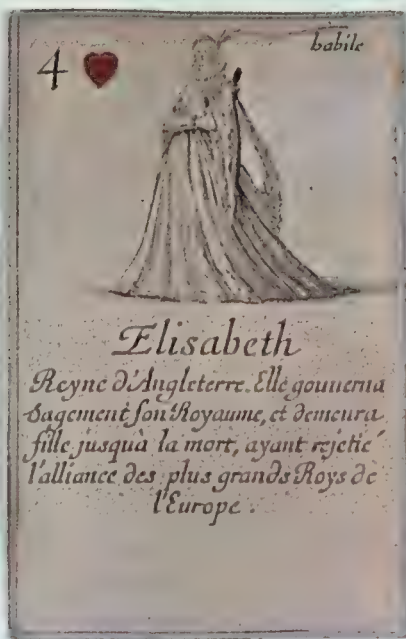 4
habile
Elisabeth
Reyne d'Angleterre. Elle gouuerna
sagement son Royaume, et demeura
fille jusqu'à la mort, ayant rejetté
l'alliance des plus grands Roys de
l'Europe.